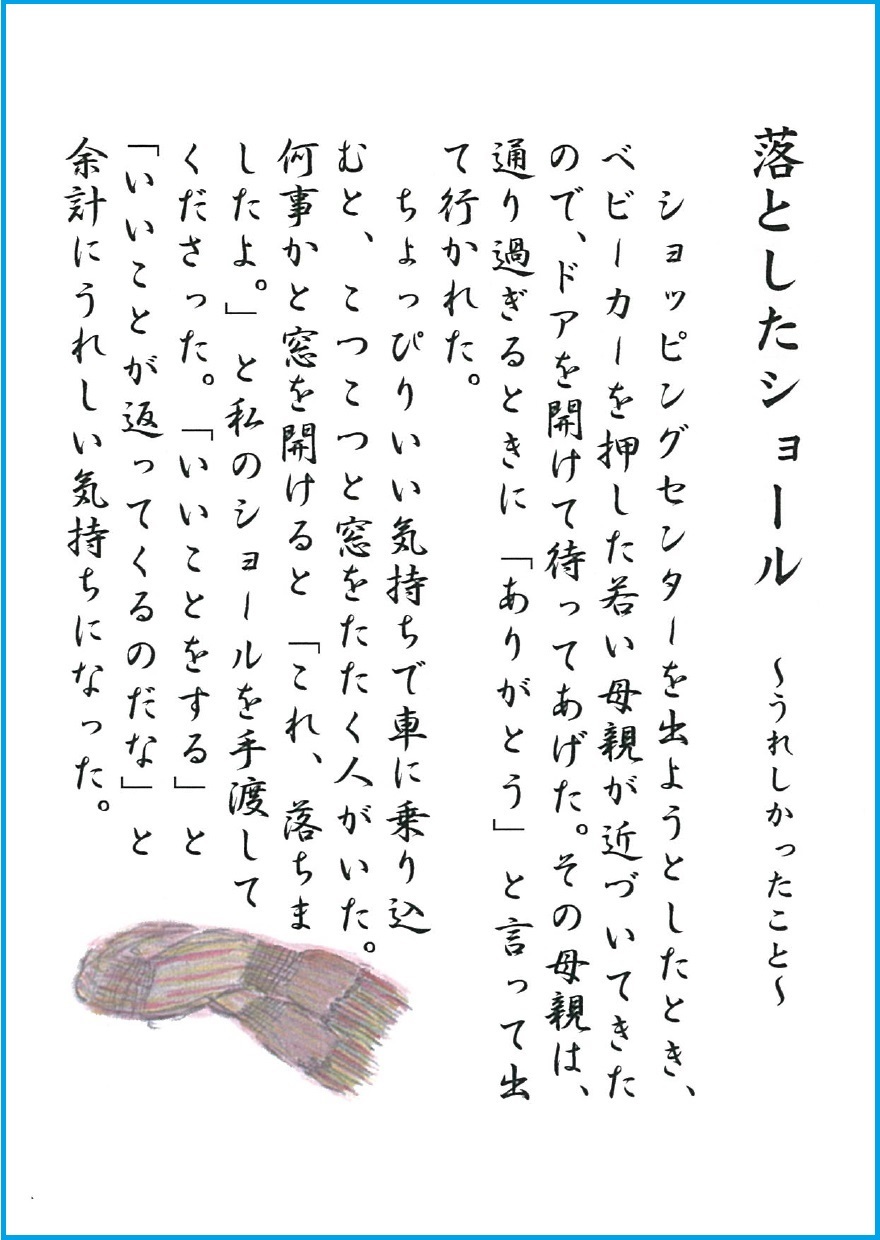 落としたショール　～うれしかったこと～
　ショッピングセンターを出ようとしたとき、
ベビーカーを押した若い母親が近づいてきた
ので、ドアを開けて待ってあげた。その母親は、
通り過ぎるときに「ありがとう」と言って出
て行かれた。
　ちょっぴりいい気持ちで車に乗り込
むと、こつこつと窓をたたく人がいた。
何事かと窓を開けると「これ、落ちま
したよ。」と私のショールを手渡して
くださった。「いいことをする」と
「いいことが返ってくるのだな」と
余計にうれしい気持ちになった。